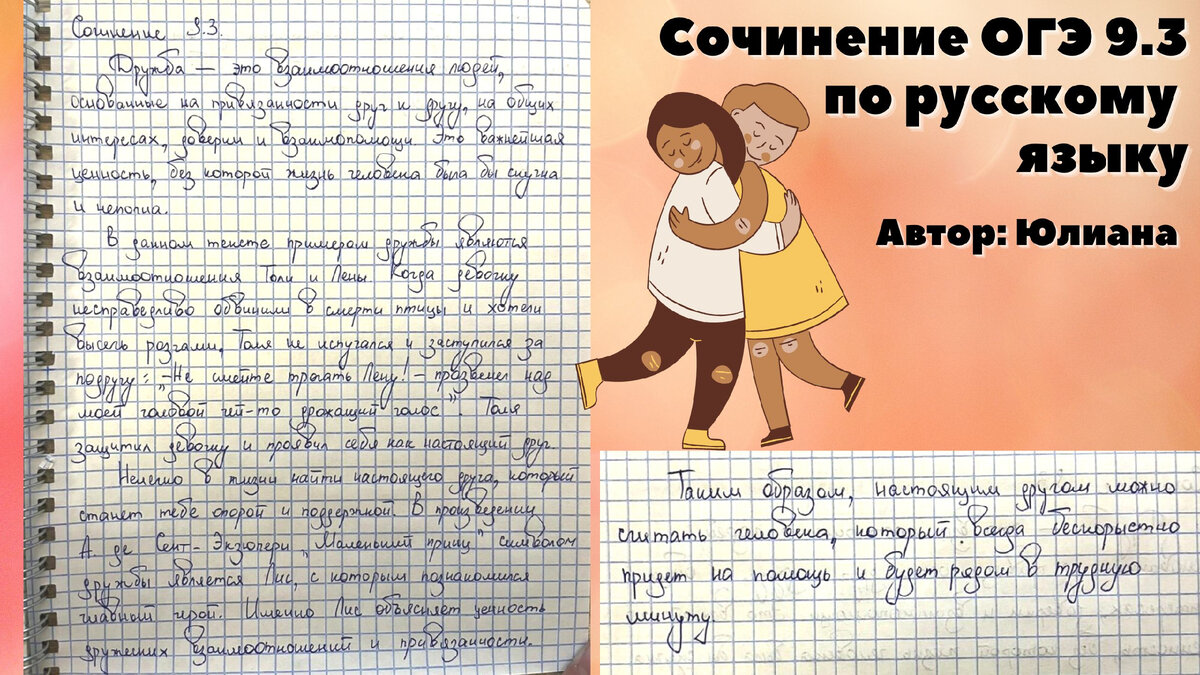 Сочинение 9.3.
Дружба — это взаимоотношения людей,
основанные на привязанности друг к другу, на общих
интересах, доверии и взаимопомощи. Это важнейшая
ценность, без которой жизнь человека была бы скучна
и неполна.
В данном тексте примером дружбы являются
взаимоотношения Толи и Лены. Когда девочку
несправедливо обвинили в смерти птицы и хотели
высечь розгами, Толя не испугался и заступился за
подругу: „-Не смейте трогать Лену! – прозвенел над
моей головой чей-то дрожащий голос". Толя
защитил девочку и проявил себя как настоящий друг.
Нелегко в жизни найти настоящего друга, который
станет тебе опорой и поддержкой. В произведении
А. де Сент-Экзюпери „Маленький принц" символом
дружбы является Лис, с которым познакомился
главный герой. Именно Лис объясняет ценность
дружеских взаимоотношений и привязанности.
Сочинение ОГЭ 9.3
по русскому
языку
Автор: Юлиана
Таким образом, настоящим другом можно
считать человека, который всегда бескорыстно
придет на помощь и будет рядом в трудную
минуту.